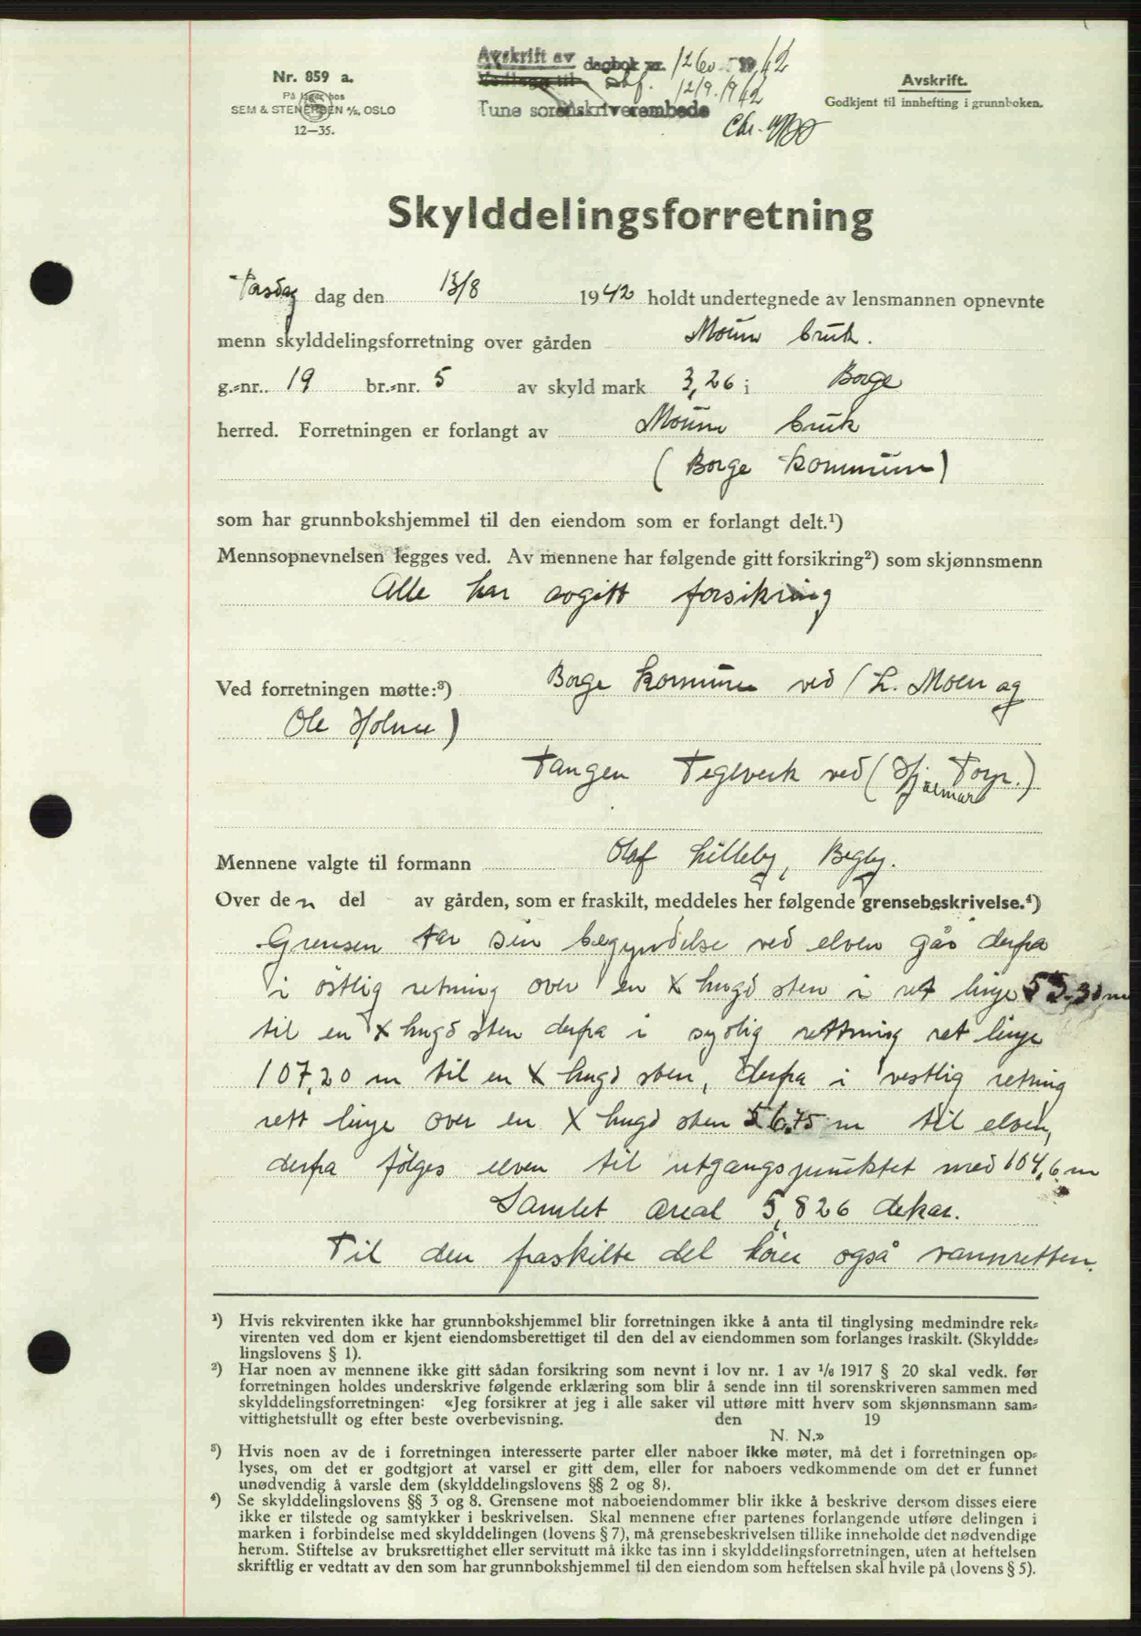 Nr. 859 a.
På lager hos
SEM & STENERSEN A/S, OSLO
12—35.
Avskrift av dagbok nr. 1260 1942
Vedlegg til 12/9. 1942
Tune sorenskriverembede
Avskrift.
Godkjent til innhefting i grunnboken.
Skylddelingsforretning
Torsdag dag den 13/8 1942 holdt undertegnede av lensmannen opnevnte
menn skylddelingsforretning over gården Moum bruk.
g.-nr. 19 br.-nr. 5 av skyld mark 3,26 i Borge
herred. Forretningen er forlangt av Moum bruk
(Borge kommune)
som har grunnbokshjemmel til den eiendom som er forlangt delt.¹)
Mennsopnevnelsen legges ved. Av mennene har følgende gitt forsikring²) som skjønnsmenn
Alle har avgitt forsikring
Ved forretningen møtte:³) Borge kommune ved (L. Moen og
Ole Holme)
Tangen Teglverk ved (Hjalmar Torp.)
Mennene valgte til formann Olaf Lilleby, Begby.
Over den del av gården, som er fraskilt, meddeles her følgende grensebeskrivelse.⁴)
Grensen tar sin begyndelse ved elven går derfra
i östlig retning over en X hugd sten i ret linje 55,30 m
til en X hugd sten derfra i sydlig rettning ret linje
107,20 m til en X hugd sten, derfra i vestlig retning
rett linje over en X hugd sten 56,75 m til elven,
derfra følges elven til utgangspunktet med 104,6 m
Samlet areal 5,826 dekar.
Til den fraskilte del hörer også vannretten.
¹) Hvis rekvirenten ikke har grunnbokshjemmel blir forretningen ikke å anta til tinglysing medmindre rek-
virenten ved dom er kjent eiendomsberettiget til den del av eiendommen som forlanges fraskilt. (Skyldde-
lingslovens § 1).
²) Har noen av mennene ikke gitt sådan forsikring som nevnt i lov nr. 1 av 1/6 1917 § 20 skal vedk. før
forretningen holdes underskrive følgende erklæring som blir å sende inn til sorenskriveren sammen med
skylddelingsforretningen: «Jeg forsikrer at jeg i alle saker vil utføre mitt hverv som skjønnsmann sam-
vittighetsfullt og efter beste overbevisning. den 19
N. N.»
³) Hvis noen av de i forretningen interesserte parter eller naboer ikke møter, må det i forretningen op-
lyses, om det er godtgjort at varsel er gitt dem, eller for naboers vedkommende om det er funnet
unødvendig å varsle dem (skylddelingslovens §§ 2 og 8).
⁴) Se skylddelingslovens §§ 3 og 8. Grensene mot naboeiendommer blir ikke å beskrive dersom disses eiere
ikke er tilstede og samtykker i beskrivelsen. Skal mennene efter partenes forlangende utføre delingen i
marken i forbindelse med skylddelingen (lovens § 7), må grensebeskrivelsen tillike inneholde det nødvendige
herom. Stiftelse av bruksrettighet eller servitutt må ikke tas inn i skylddelingsforretningen, uten at heftelsen
skriftlig er vedtatt av den som har grunnbokshjemmel til den eiendom som heftelsen skal hvile på (lovens § 5).